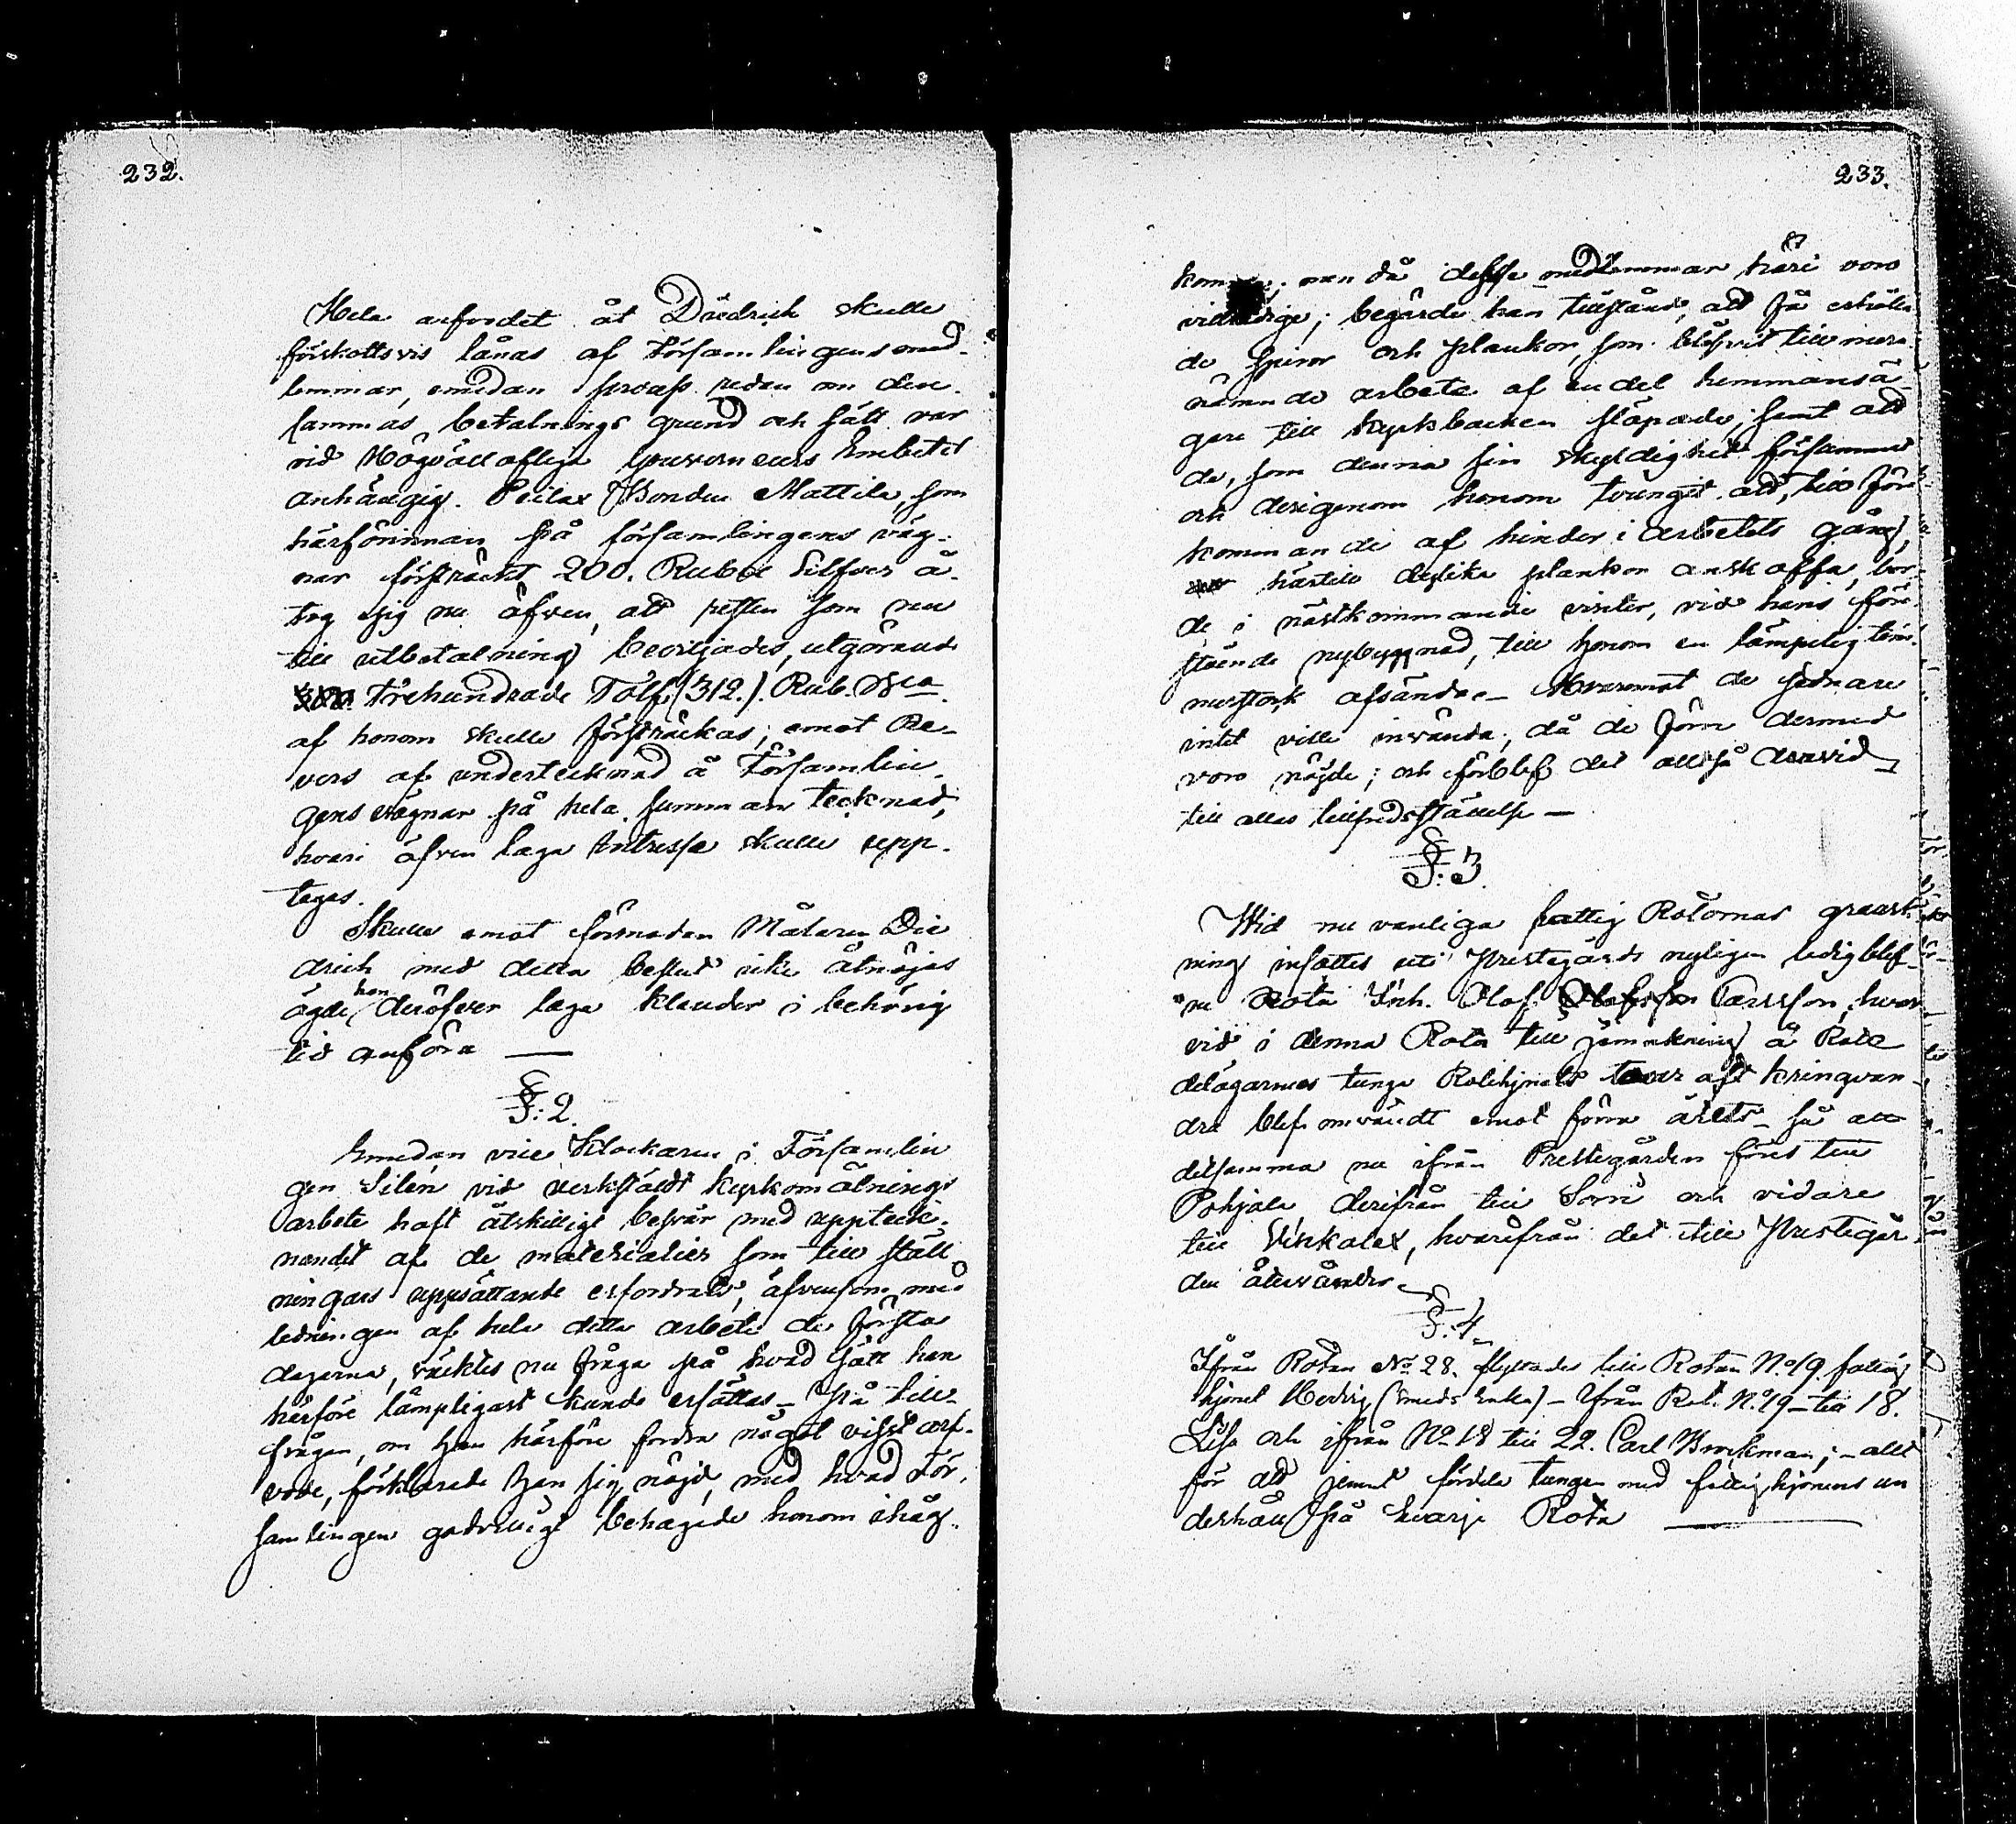 232.
Hela arfvodet åt Diedrich skulle
förskottsvis lånas af Församlingens med-
lemmar, emedan process redan om den-
sammas betalnings grund och sätt var
vid Högvällofliga Gouverneurs Embetet
anhängig. Peilax Bonden Mattila, som
härförinnan på församlingens väg-
nar försträckt 200. Rubel Silfver å-
tog sig nu äfven, att resten som nu
till utbetalning beviljades, utgörande
Trehundrade Tolf (312.) Rub. Bco
af honom skulle försträckas; emot Re-
vers af undertecknad å Församlin-
gens vägnar på hela summan tecknad,
hvari äfven laga Intresse skulle upp-
tagas.
Skulle emot förmodan Målaren Die
drich med detta beslut icke åtnöjas
ägde han deröfver laga klander i behörig
tid anföra —
§: 2.
Emedan vice Klockaren i Församlin
gen Silén vid verkstäldt kyrkomålnings
arbete haft åtskilligt besvär med uppteck-
nandet af de materialier som till ställ
ningars uppsättande erfordrats, äfvensom med
ledningen af hela detta arbete de första
dagarna, väcktes nu fråga på hvad sätt han
härföre lämpligast kunde ersättas – På till-
frågan, om han härföre fordra något visst arf-
vode, förklarade han sig nöjd, med hvad För-
samlingen godvilligt behagade honom ihåg-
233.
komma; men då desse medlemmar häri voro
villrådige; begärde han tillstånd, att få erhålla
de spiror och plankor, som blifvit till meren
nämnde arbete af en del hemmansä-
gare till Kyrkbacken släpade; samt att
de, som denna sin skyldighet försummat
och derigenom honom tvungit att, till före
kommande af hinder i arbetets gång,
härtill dylika plankor anskaffa, bor-
de i nästkommande vinter, vid hans före
stående nybyggnad, till honom en lämpelig tim-
merstock afsända – Hvaremot de sednare
intet ville invända, då de förra dermed
voro nöjde; och förblef det alltså dervid
till allas tillfredsställelse —
§: 3.
Wid nu vanliga fattig Rotornas gransk-
ning insattes uti Prestegårds nyligen ledig blef-
ne Rota Inh. Olof Larsson, hvar
vid i denna Rota till jemnkning å Rote
delägarnes tunga Rotehjonets kringvan-
dra blef omvändt emot förra årets – så att
detsamma nu ifrån Prestegården föres till
Pohjala derifrån till Sorri och vidare
till Vinkalax, hvarifrån det till Prestegår
den återvänder –
§: 4.
Ifrån Rotan No 28. flyttades till Rotan No. 19 fattig
hjonet Hedvig (Smeds Enka) – Ifrån Rot. No. 19 – till 18.
Lisa och ifrån No 18 till 22. Carl Brockman; – allt
för att jemnt fördela tungan med fattighjonens un
derhåll på hvarje Rota —